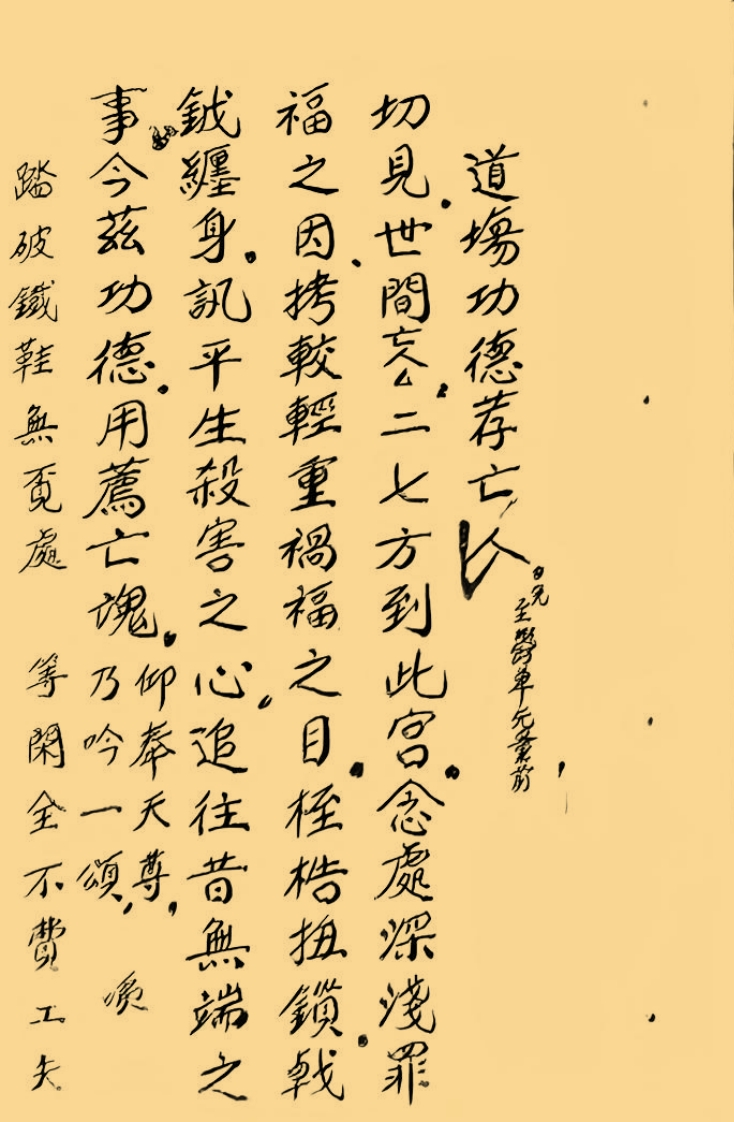 道塲功德荐亡
切見世間亡人厶二七方到此宮念處深淺罪
福之因拷較輕重禍福之目桎梏扭鎖戟
鉞纏身訊平生殺害之心追往昔無端之
事今茲功德用薦亡魂
仰奉天尊
乃吟一頌
踏破鐵鞋無覔處 等閑全不費工夫